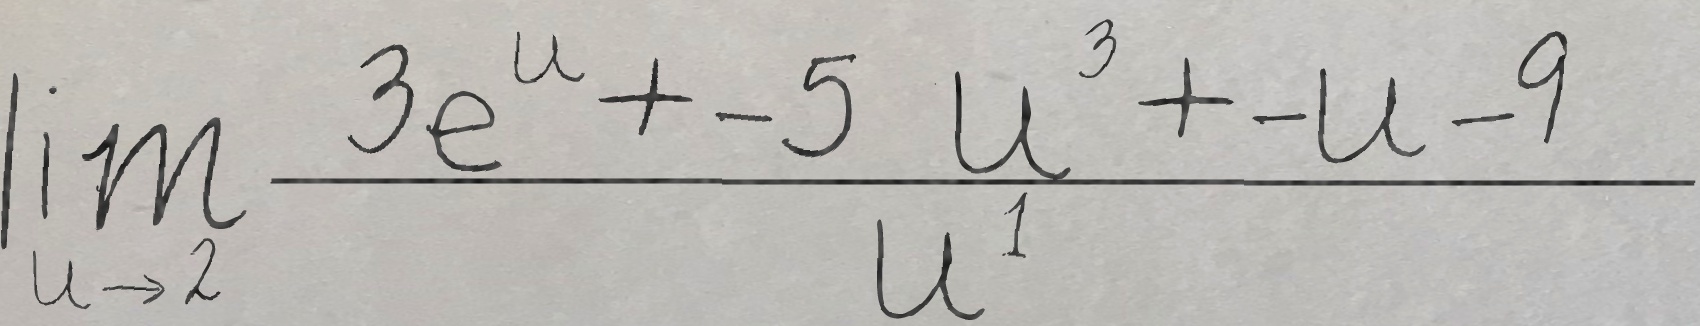 \lim_{u \to 2} \frac{3e^{u} + -5u^{3} + -u - 9}{u^{1}}